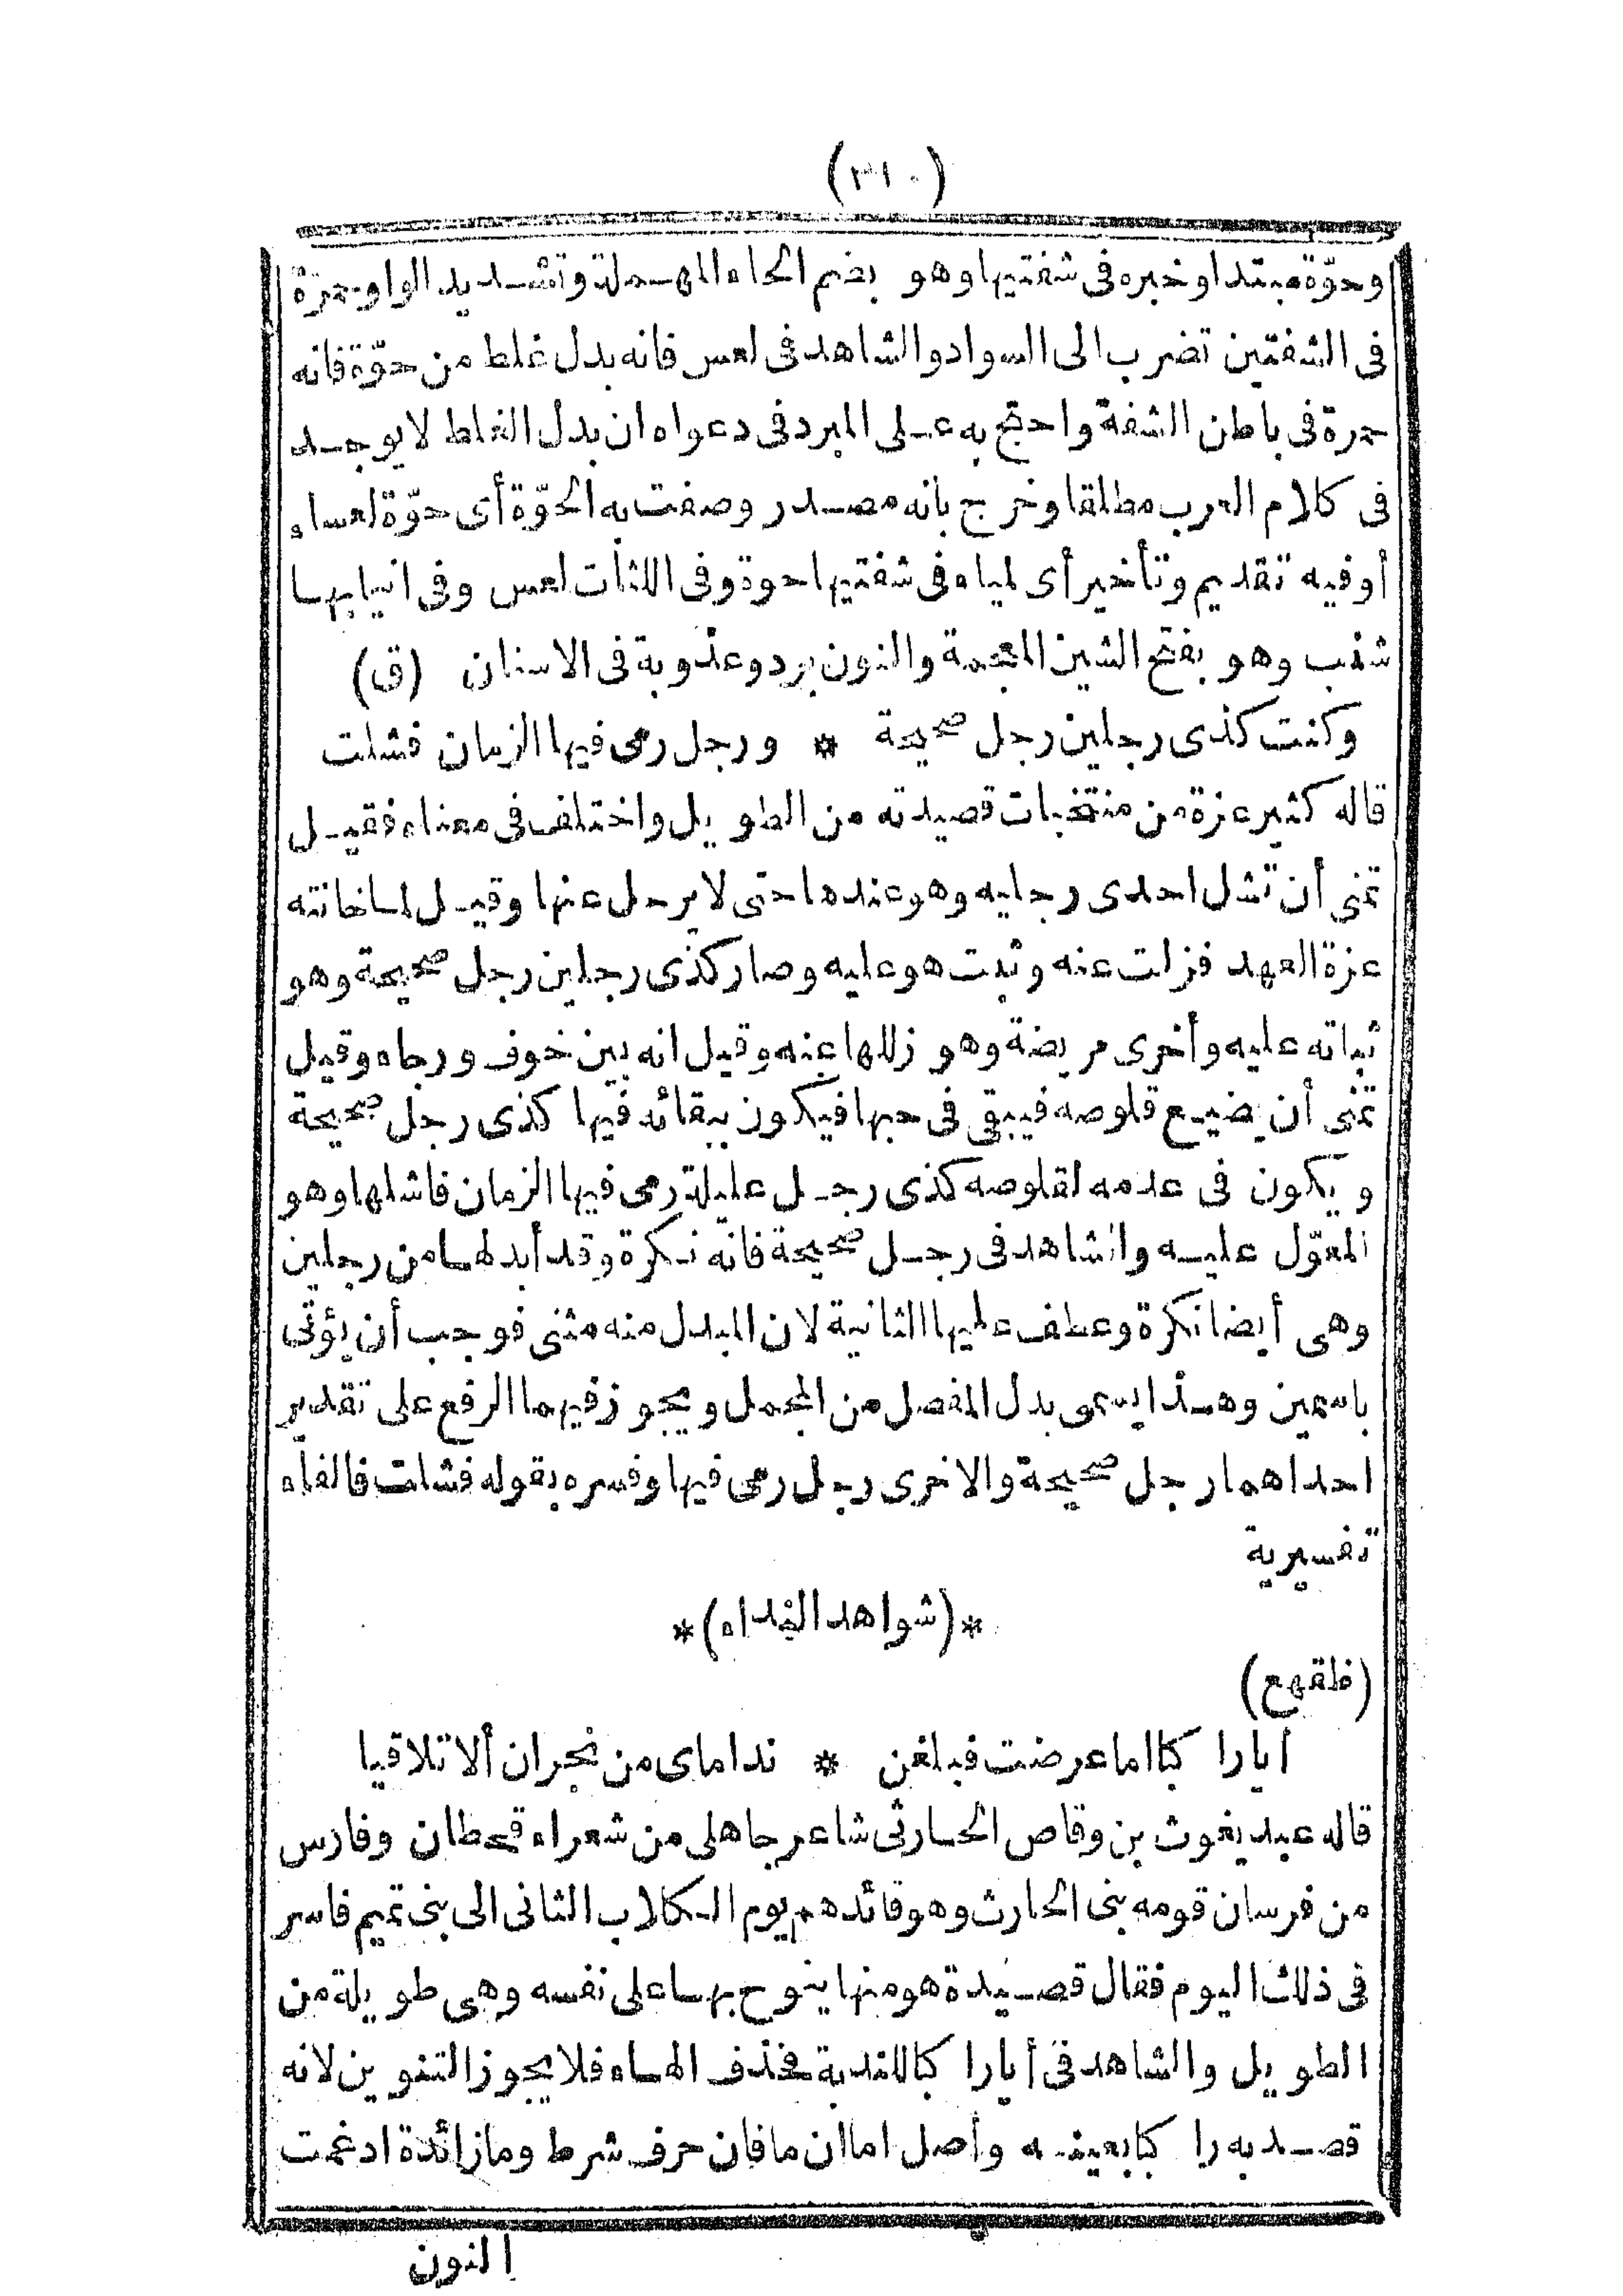 (٣١٠)
وحوّة مبتدا وخبره فى شفتيها وهو بضم الحاء المهملة وتشديد الواو حمرة
فى الشفتين تضرب الى السواد والشاهد فى لعس فانه بدل غلط من حوّة فانه
حمرة فى باطن الشفة واحتج به على المبرد فى دعواه ان بدل الغلط لا يوجد
فى كلام العرب مطلقا وخرج بانه مصدر وصفت به الحوّة أى حوّة لعساء
أو فيه تقديم وتأخير أى لمياء فى شفتيها حوة وفى اللثات لعس وفى انيابها
شنب وهو بفتح الشين المعجمة والنون برد وعذوبة فى الاسنان (ق)
وكنت كذى رجلين رجل صحيحة * ورجل رمى فيها الزمان فشلت
قاله كثير عزة من منتخبات قصيدته من الطويل واختلف فى معناه فقيل
تمنى أن تشل احدى رجليه وهو عندها حتى لا يرحل عنها وقيل لما خانته
عزة العهد فزلت عنه وثبت هو عليه وصار كذى رجلين رجل صحيحة وهو
ثباته عليه وأخرى مريضة وهو زللها عنه وقيل انه بين خوف ورجاء وقيل
تمنى أن يضيع قلوصه فيبقى فى حبها فيكون ببقائه فيها كذى رجل صحيحة
ويكون فى عدمه لقلوصه كذى رجل عليلة رمى فيها الزمان فاشلها وهو
المعوّل عليه والشاهد فى رجل صحيحة فانه نكرة وقد أبدلها من رجلين
وهى أيضا نكرة وعطف عليها الثانية لان المبدل منه مثنى فوجب أن يؤتى
باسمين وهذا يسمى بدل المفصل من المجمل ويجوز فيهما الرفع على تقدير
احداهما رجل صحيحة والاخرى رجل رمى فيها وفسره بقوله فشلت فالفاء
تفسيرية
*(شواهد النداء)*
(ظقهع)
أيا را كبا اما عرضت فبلغن * نداماى من نجران ألا تلاقيا
قاله عبد يغوث بن وقاص الحارثى شاعر جاهلى من شعراء قحطان وفارس
من فرسان قومه بنى الحارث وهو قائدهم يوم الكلاب الثانى الى بنى تميم فاسر
فى ذلك اليوم فقال قصيدة هو منها ينوح بها على نفسه وهى طويلة من
الطويل والشاهد فى أيا را كبا للندبة فحذف الهاء فلا يجوز التنوين لانه
قصد به را كبا بعينه وأصل اما ان ما فان حرف شرط وما زائدة ادغمت
النون